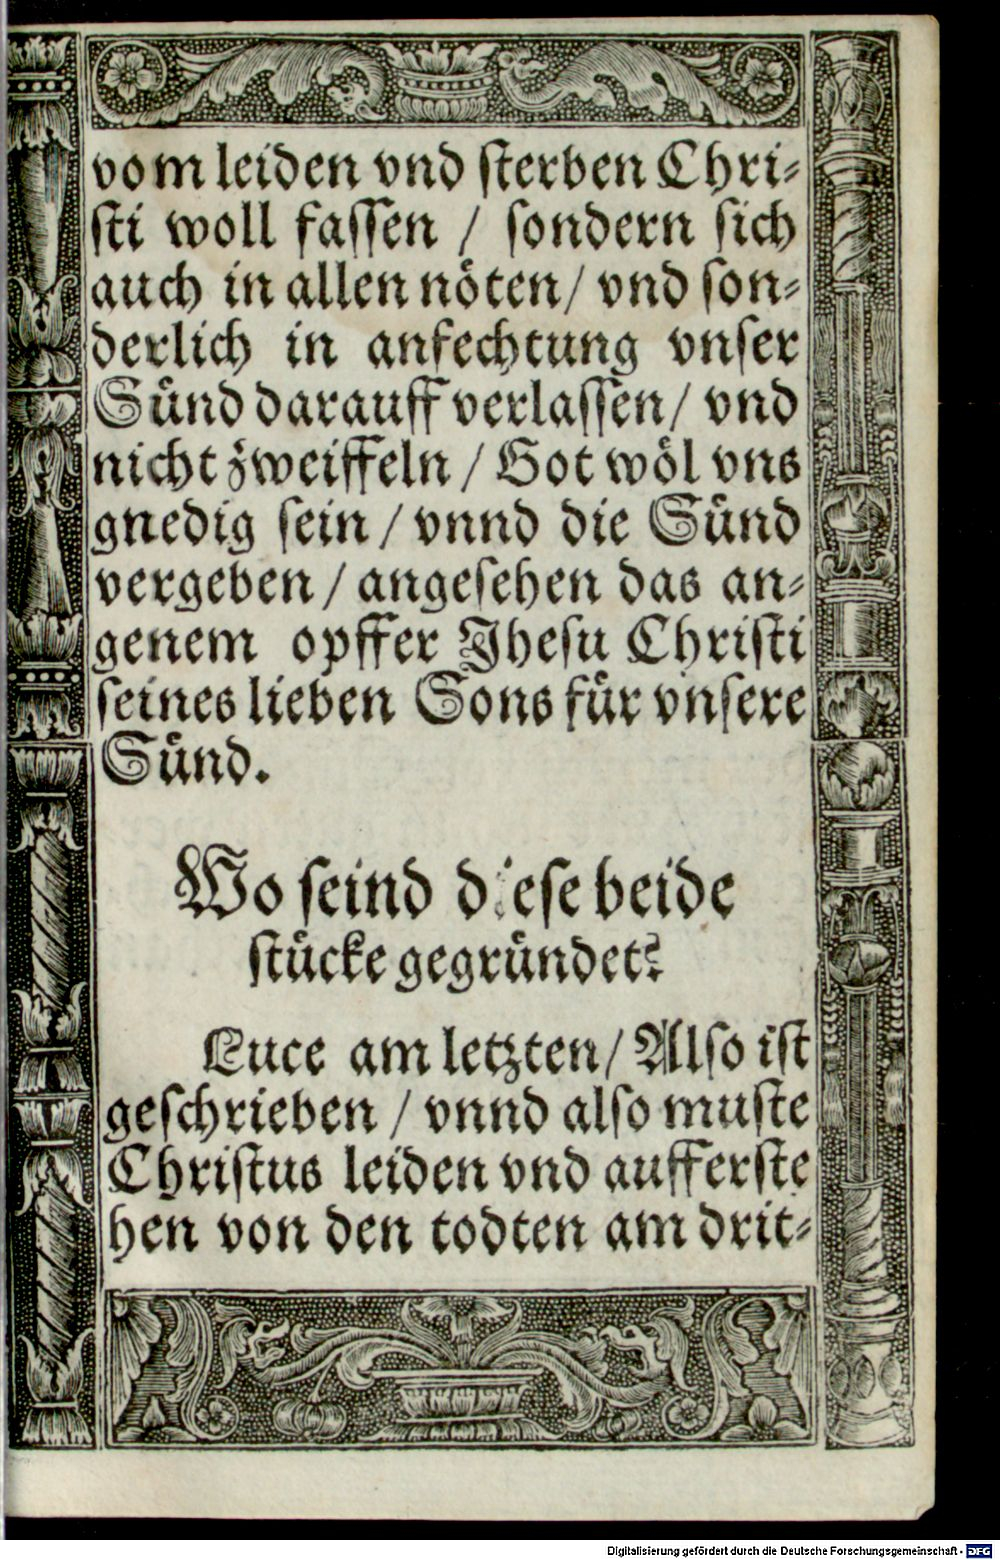 vom leiden vnd sterben Chri-
sti woll fassen / sondern sich
auch in allen nöten / vnd son-
derlich in anfechtung vnser
Sünd darauff verlassen / vnd
nicht zweiffeln / Got wöl vns
gnedig sein / vnnd die Sünd
vergeben / angesehen das an-
genem opffer Jhesu Christi
seines lieben Sons für vnsere
Sünd.
Wo seind diese beide
stücke gegründet?
Luce am letzten / Also ist
geschrieben / vnnd also muste
Christus leiden vnd aufferste
hen von den todten am drit-
Digitalisierung gefördert durch die Deutsche Forschungsgemeinschaft - DFG